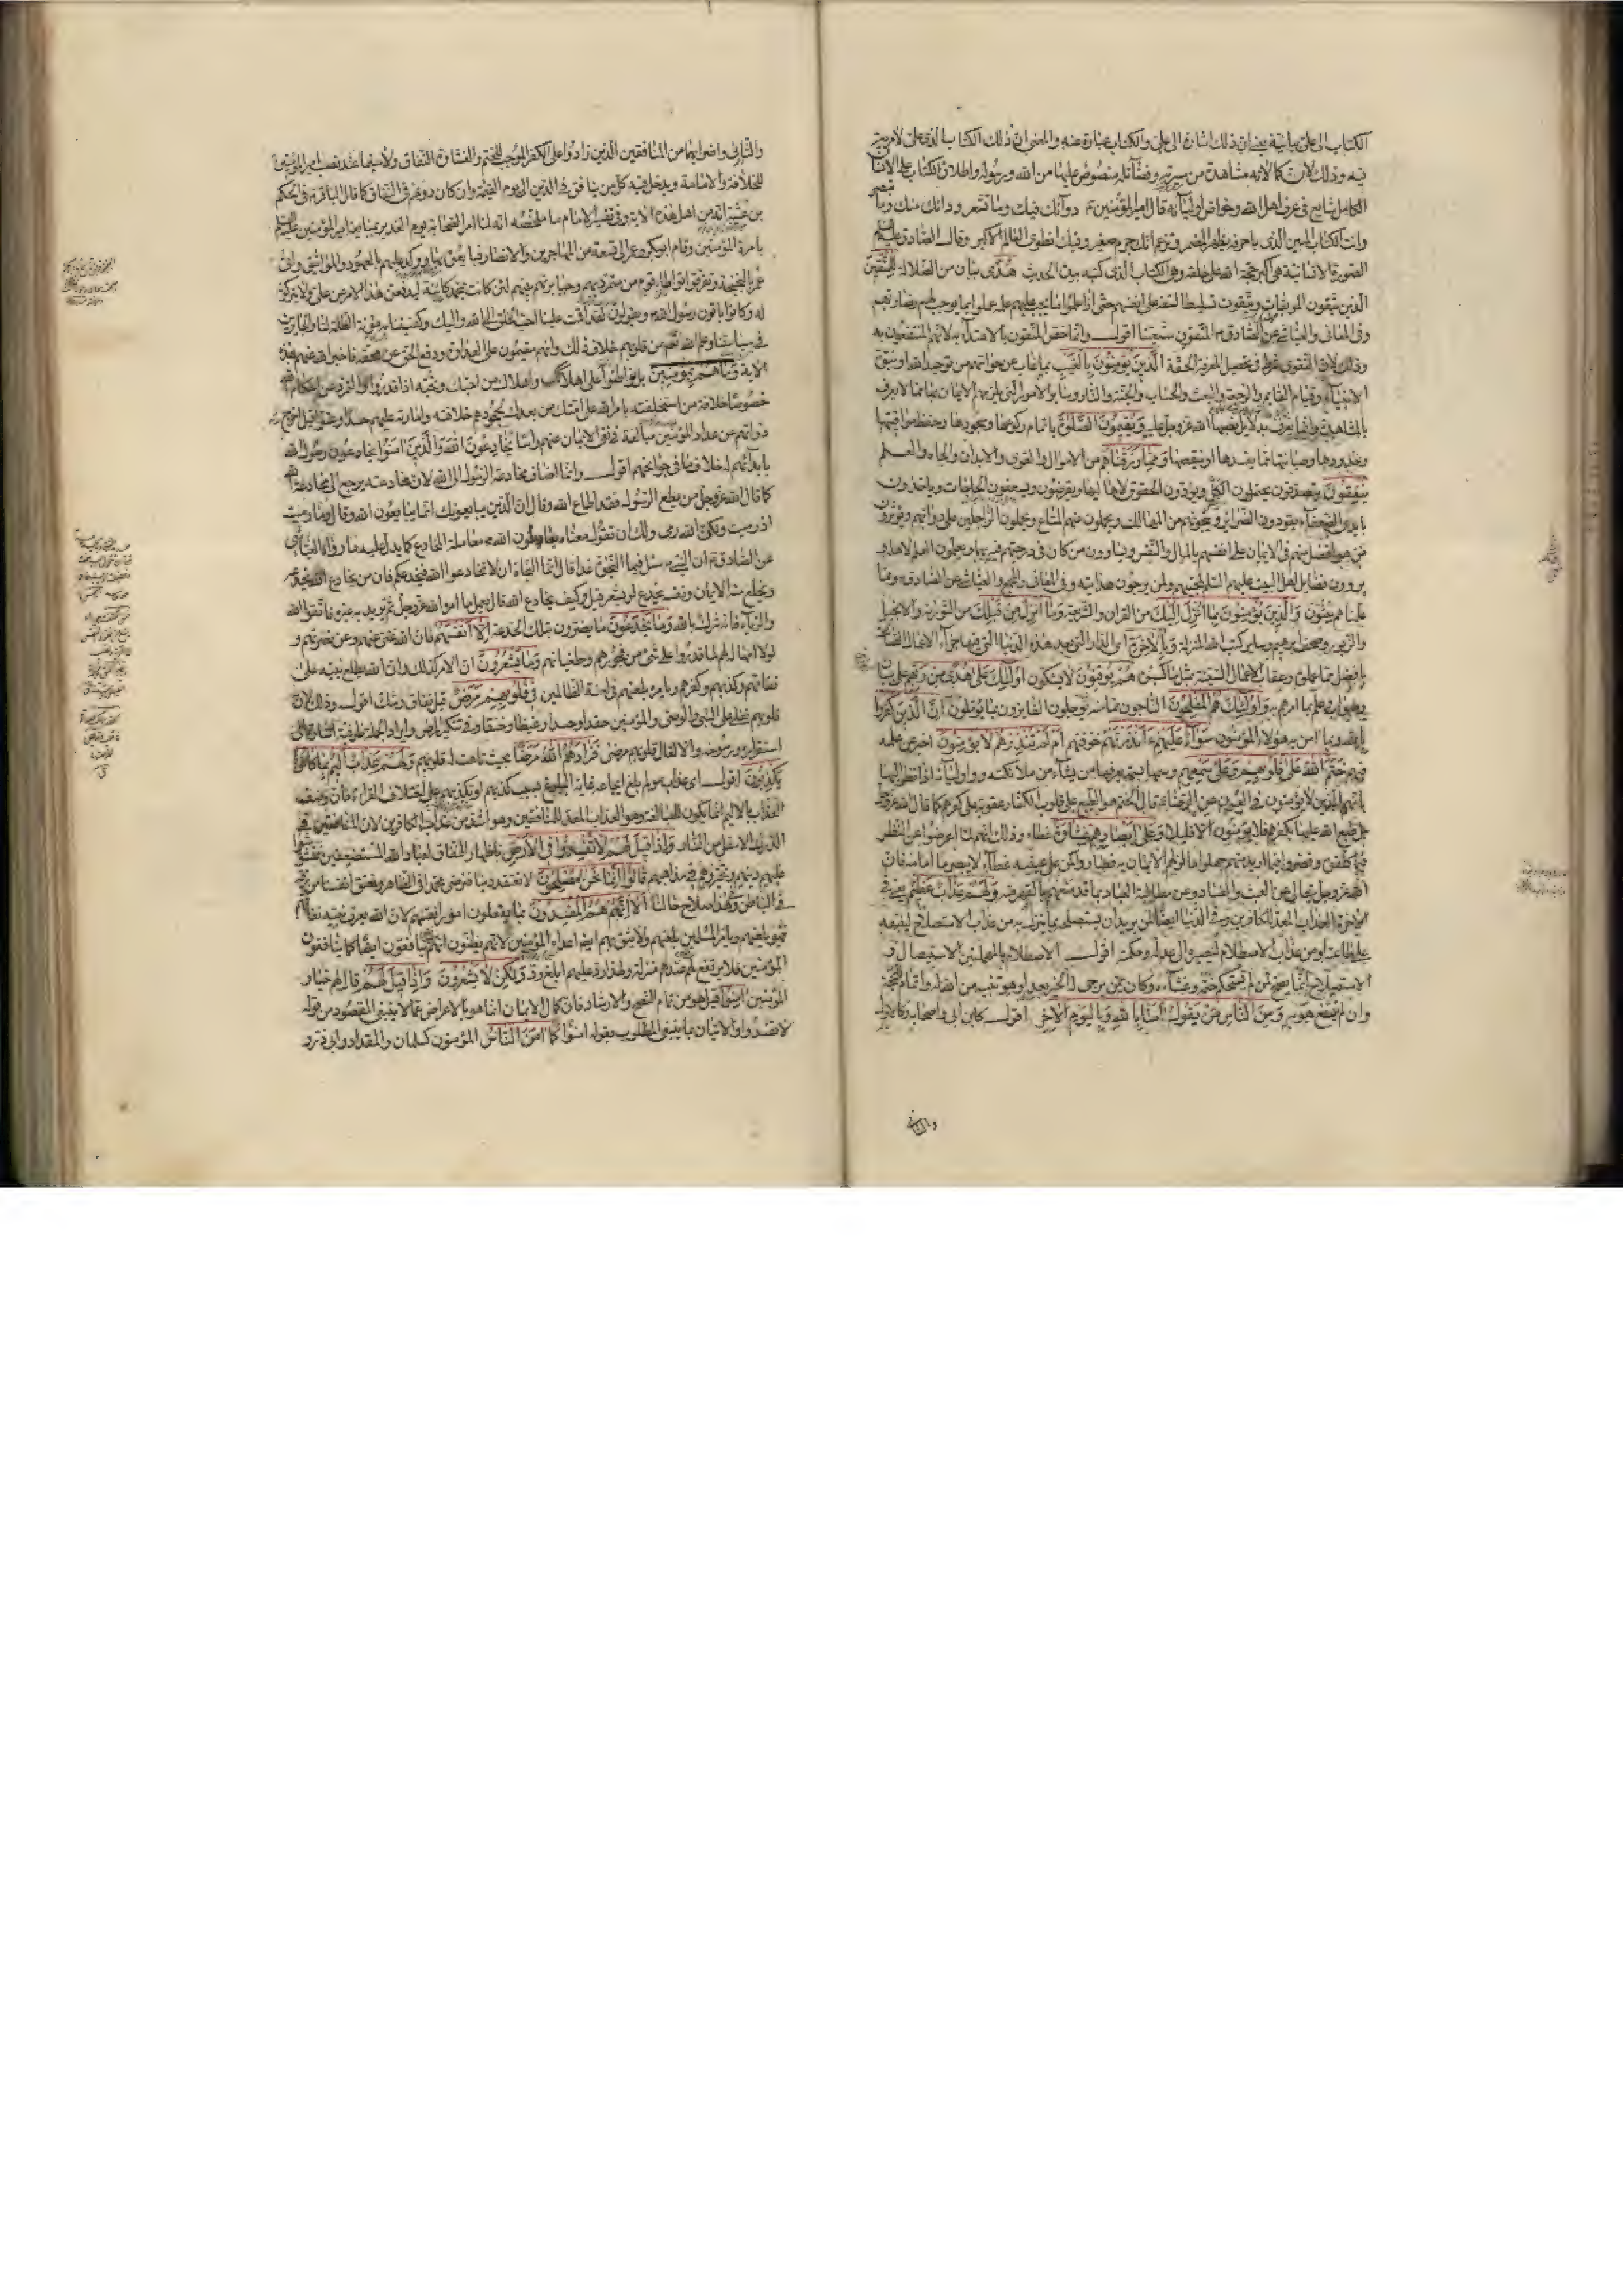 الكتاب الى علي بيانية يعني ان ذلك اشارة الى علي والكتاب عبارة عنه والمعنى ان ذلك الكتاب الذي هو علي لا مرية
فيه وذلك لأن كمالاته مشاهدة من سيرته وفضائله منصوص عليها من الله ورسوله واطلاق الكتاب على الانسان
الكامل شايع في عرف اهل الله وخواص اوليائه قال امير المؤمنين ع دوائك فيك وما تشعر ودائك منك وما تبصر
وانت الكتاب المبين الذي باحرفه يظهر المضمر وتزعم انك جرم صغير وفيك انطوى العالم الاكبر وقال الصادق عليه السلم
الصورة الانسانية هي اكبر حجة الله على خلقه وهي الكتاب الذي كتبه بيده الحديث هُدًى بيان من الضلالة لِلْمُتَّقِينَ
الذين يتقون الموبقات ويتقون تسليط السفه على انفسهم حتى اذا علموا ما يجب عليهم علمه عملوا بما يوجب لهم رضا ربهم
وفي المعاني والعياشي عن الصادق ع المتقون شيعتنا اقول وانما خص المتقون بالاهتداء به لانهم المنتفعون به
وذلك لان التقوى شرط في تحصيل المعرفة الحقة الَّذِينَ يُؤْمِنُونَ بِالْغَيْبِ بما غاب عن حواسهم من توحيد الله ونبوة
الانبياء وقيام القايم والرجعة والبعث والحساب والجنة والنار وساير الامور التي يلزمهم الايمان بها مما لا يعرف
بالمشاهدة وانما يعرف بدلايل نصبها الله عز وجل عليه وَيُقِيمُونَ الصَّلٰوةَ باتمام ركوعها وسجودها وحفظ مواقيتها
وحدودها وصيانتها مما يفسدها او ينقصها وَمِمَّا رَزَقْنَاهُمْ من الاموال والقوى والابدان والجاه والعلم
يُنْفِقُونَ يتصدقون يحتملون الكل ويؤدون الحقوق لاهاليها ويقرضون ويسعفون الحاجات وياخذون
بايدي الضعفاء يقودون الضراير وينجونهم من المهالك ويحملون عنهم المتاع ويحملون الراجلين على دوابهم ويؤثرون
من هو افضل منهم في الايمان على انفسهم بالمال والنفس ويساوون من كان في درجتهم فيه بهما ويعلمون العلم لاهله و
يروون فضايل اهل البيت عليهم السلم لمحبيهم ولمن يرجون هدايته وفي المعاني والمجمع والعياشي عن الصادق ع ومما
علمناهم يبثون وَالَّذِينَ يُؤْمِنُونَ بِمَا أُنْزِلَ إِلَيْكَ من القران والشريعة وَمَا أُنْزِلَ مِنْ قَبْلِكَ من التورية والانجيل
والزبور وصحف ابراهيم وساير كتب الله المنزلة وَبِالْآخِرَةِ اي الدار التي بعد هذه الدنيا التي فيها جزاء الاعمال الصالحة
بافضل مما عملوه وعقاب الاعمال السيئة بمثل ما كسبوه هُمْ يُوقِنُونَ لا يشكون أُولٰئِكَ عَلَى هُدًى مِنْ رَبِّهِمْ على بيان
وصواب وعلم بما امرهم به وَأُولٰئِكَ هُمُ الْمُفْلِحُونَ الناجون مما منه يوجلون الفايزون بما يؤملون إِنَّ الَّذِينَ كَفَرُوا
بالله وبما امن به هؤلاء المؤمنون سَوَاءٌ عَلَيْهِمْ ءَأَنْذَرْتَهُمْ خوفتهم أَمْ لَمْ تُنْذِرْهُمْ لَا يُؤْمِنُونَ اخبر عن علمه
فيهم خَتَمَ اللهُ عَلَى قُلُوبِهِمْ وَعَلَى سَمْعِهِمْ وسمها بسمة يعرفها من يشاء من ملائكته واوليائه اذا نظروا اليها
بانهم الذين لا يؤمنون في العيون عن الرضا ع قال الختم هو الطبع على قلوب الكفار عقوبة على كفرهم كما قال الله عز وجل
بل طبع الله عليها بكفرهم فلا يؤمنون الا قليلا وَعَلَى أَبْصَارِهِمْ غِشَاوَةٌ غطاء وذلك انهم لما اعرضوا عن النظر
فيما كلفوه وقصروا فيما اريد منهم جهلوا ما لزمهم الايمان به فصاروا كمن على عينيه غطاء لا يبصر ما امامه فان
الله عز وجل يتعالى عن العبث والفساد وعن مطالبة العباد بما قد منعهم بالقهر منه وَلَهُمْ عَذَابٌ عَظِيمٌ يعني في
الاخرة العذاب المعد للكافرين وفي الدنيا ايضا لمن يريد ان يستصلحه بما ينزل به من عذاب الاستصلاح لينبهه
على طاعته او من عذاب الاصطلام ليصيره الى عدله وحكمته اقول الاصطلام بالمهملتين الاستيصال و
الاستصلاح انما يصح لمن لم يستحكم ختمه وغشاوته وكان ممن يرجى له الخير بعد او هو تنبيه من الله له واتمام للحجة
وان لم ينتفع هو به وَمِنَ النَّاسِ مَنْ يَقُولُ آمَنَّا بِاللهِ وَبِالْيَوْمِ الْآخِرِ اقول كابن ابي واصحابه وكالاول
والثاني
والثاني واضرابهما من المنافقين الذين زادوا على الكفر الموجب للختم والغشاوة النفاق ولا سيما عند نصب امير المؤمنين
للخلافة والامامة ويدخل فيه كل من ينافق في الدين الى يوم القيمة وان كان دونهم في النفاق كما قال الباقر ع في الحكم
بن عتيبة انه من اهل هذه الاية وفي تفسير الامام ما ملخصه انه لما امر الصحابة يوم الغدير بمبايعة امير المؤمنين عليه السلم
بامرة المؤمنين وقام ابو بكر وعمر الى تسعة من المهاجرين والانصار فبايعوه بها ووكد عليهم بالعهود والمواثيق واتى
عمر بالبخبخة وتفرقوا تواطأ قوم من متمرديهم وجبابرتهم بينهم لئن كانت بمحمد كاينة ليدفعن هذا الامر عن علي ولا يتركونه
له وكانوا ياتون رسول الله ص ويقولون لقد اقمت علينا احب الخلق الى الله واليك وكفيتنا به مؤنة الظلمة لنا والجايرين
في سياستنا وعلم الله تع من قلوبهم خلاف ذلك وانهم مقيمون على العداوة ودفع الحق عن مستحقه فاخبر الله عنهم بهذه
الاية وَمَا هُمْ بِمُؤْمِنِينَ بل تواطئوا على اهلاكك واهلاك من احبك وتحبه اذا قدروا والتمرد عن احكام الله
خصوصا خلافة من استخلفته بامر الله على امتك من بعدك لجحودهم خلافته وامارته عليهم حسدا وعتوا قيل اخرج
ذواتهم من عداد المؤمنين مبالغة في نفي الايمان عنهم راسا يُخَادِعُونَ اللهَ وَالَّذِينَ آمَنُوا يخادعون رسول الله
بابدائهم له خلاف ما في جوانحهم اقول وانما اضاف مخادعة الرسول الى الله لان مخادعته يرجع الى مخادعة الله
كما قال الله عز وجل من يطع الرسول فقد اطاع الله وقال ان الذين يبايعونك انما يبايعون الله وقال وما رميت
اذ رميت ولكن الله رمى ولك ان تقول معناه يعاملون الله معاملة المخادع كما يدل عليه ما رواه العياشي
عن الصادق ع ان النبي ص سئل فيما النجاة غدا قال انما النجاة ان لا تخادعوا الله فيخدعكم فان من يخادع الله يخدعه
ويخلع منه الايمان ونفسه يخدع لو يشعر فقيل وكيف يخادع الله قال يعمل بما امر الله عز وجل ثم يريد به غيره فاتقوا الله
والرياء فانه شرك بالله وَمَا يَخْدَعُونَ ما يضرون بتلك الخدعة إِلَّا أَنْفُسَهُمْ فان الله غني عنهم وعن نصرتهم و
لولا امهاله لهم لما قدروا على شئ من فجورهم وطغيانهم وَمَا يَشْعُرُونَ ان الامر كذلك وان الله يطلع نبيه على
نفاقهم وكذبهم وكفرهم ويامره بلعنهم في لعنة الظالمين فِي قُلُوبِهِمْ مَرَضٌ قيل نفاق وشك اقول وذلك لان
قلوبهم تغلي على النبي والوصي والمؤمنين حقدا وحسدا وغيظا وحنقا وفي تنكير المرض وايراد الجملة ظرفية اشارة الى
استقراره ورسوخه والا لقال قلوبهم مرضى فَزَادَهُمُ اللهُ مَرَضًا بحيث تاهت له قلوبهم وَلَهُمْ عَذَابٌ أَلِيمٌ بِمَا كَانُوا
يَكْذِبُونَ اقول اي عذاب مولم بلغ ايجاعه غاية البلوغ بسبب كذبهم او تكذيبهم على اختلاف القراءة فان وصف
العذاب بالاليم انما يكون للمبالغة وهو العذاب المعد للمنافقين وهو اشد من عذاب الكافرين لان المنافقين في
الدرك الاسفل من النار وَإِذَا قِيلَ لَهُمْ لَا تُفْسِدُوا فِي الْأَرْضِ باظهار النفاق لعباد الله المستضعفين فتشوشوا
عليهم دينهم وتحيروهم في مذاهبهم قَالُوا إِنَّمَا نَحْنُ مُصْلِحُونَ لانا لا نعتقد دينا فنرضى محمدا في الظاهر ونعتق انفسنا من رقه
في الباطن وهذا صلاح حالنا أَلَا إِنَّهُمْ هُمُ الْمُفْسِدُونَ بما يفعلون امور انفسهم لان الله يعرف نبيه نفاقهم
فهو يلعنهم ويامر المسلمين بلعنهم ولا يثق بهم ايضا اعداء المؤمنين لانهم يظنون انهم ينافقونهم ايضا كما ينافقون
المؤمنين فلا يرتفع لهم عندهم منزلة ولهذا رد عليهم ابلغ رد وَلٰكِنْ لَا يَشْعُرُونَ وَإِذَا قِيلَ لَهُمْ قال لهم خيار
المؤمنين آمِنُوا قيل هو من تمام النصح والارشاد فان كمال الايمان انما هو بالاعراض عما لا ينبغي المقصود من قوله
لا تفسدوا والاتيان بما ينبغي المطلوب بقوله امنوا كَمَا آمَنَ النَّاسُ المؤمنون كسلمان والمقداد وابي ذر و